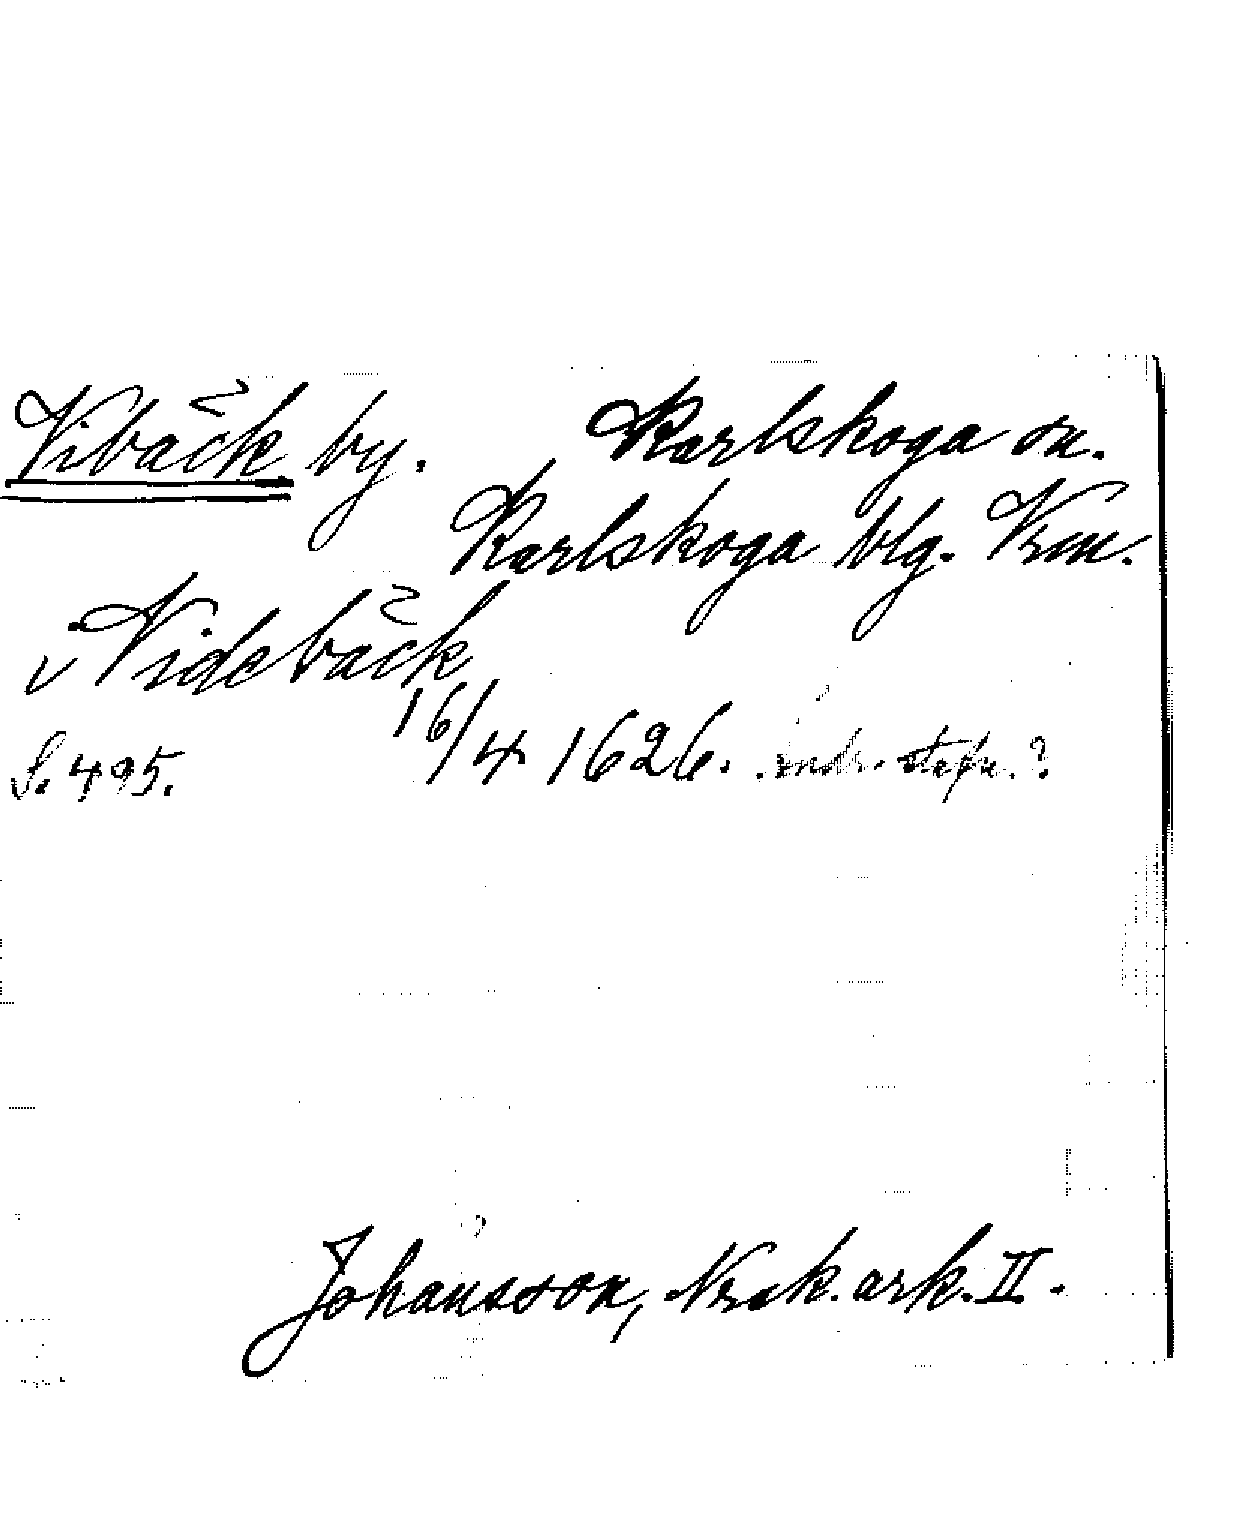 Vibäck by. Karlskoga sn.
Karlskoga blg. Vrm.
i Videbäck
S. 495. 16/4 1626. ändr. stafn.?
Johansson, Norask. ark. II.